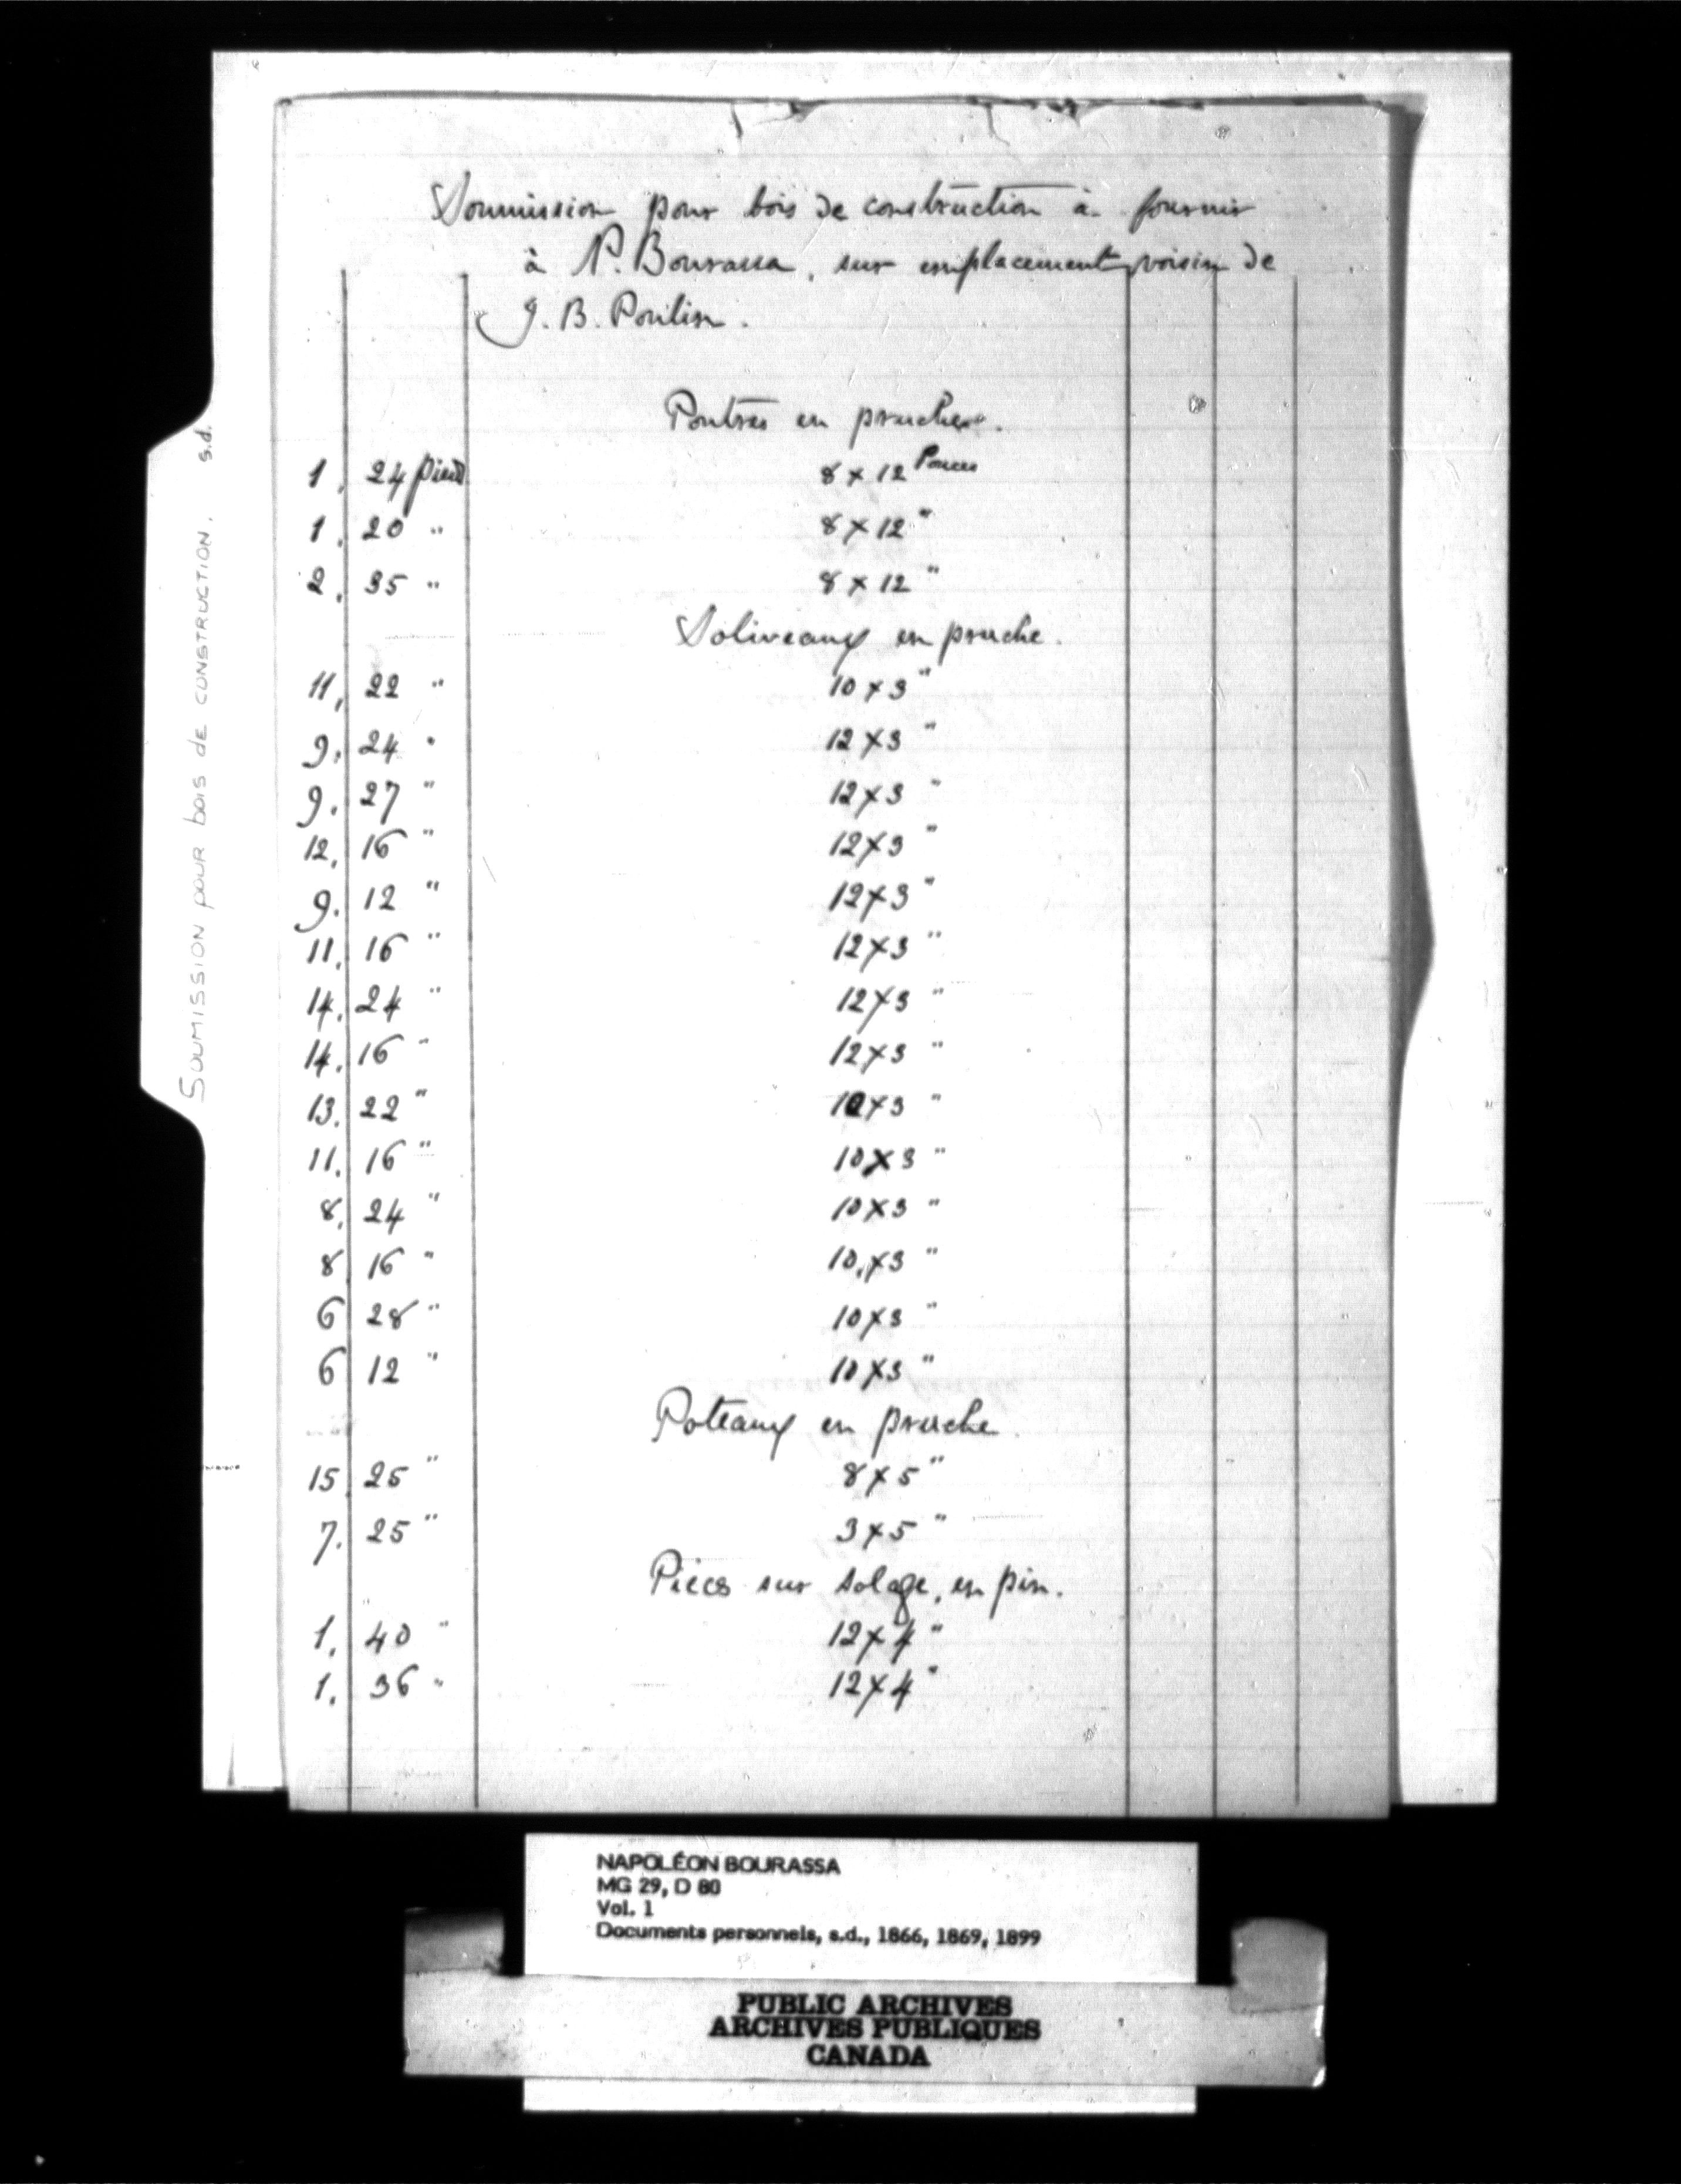 Soumission pour bois de construction à fournir
à N. Bourassa, sur emplacement voisin de
J. B. Poulin.
Poutres en pruche.
1. 24 pieds 8 x 12 Pouces
1. 20 " 8 x 12 "
2. 35 " 8 x 12 "
Soliveaux en pruche.
11, 22 " 10 x 3 "
9. 24 " 12 x 3 "
9. 27 " 12 x 3 "
12. 16 " 12 x 3 "
9. 12 " 12 x 3 "
11. 16 " 12 x 3 "
14. 24 " 12 x 3 "
14. 16 " 12 x 3 "
13. 22 " 10 x 3 "
11. 16 " 10 x 3 "
8. 24 " 10 x 3 "
8 16 " 10 x 3 "
6 28 " 10 x 3 "
6 12 " 10 x 3 "
Poteaux en pruche
15 25 " 8 x 5 "
7. 25 " 3 x 5 "
Pieces sur solage, en pin.
1. 40 " 12 x 4 "
1. 36 " 12 x 4 "
SOUMISSION pour bois de CONSTRUCTION. s.d.
NAPOLÉON BOURASSA
MG 29, D 80
Vol. 1
Documents personnels, s.d., 1866, 1869, 1899
PUBLIC ARCHIVES
ARCHIVES PUBLIQUES
CANADA